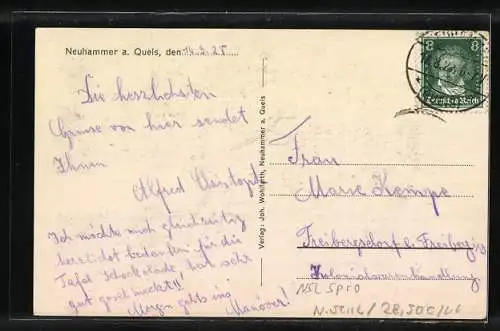 Neuhammer a. Queis, den 14.9.28
Die herzlichsten
Grüsse von hier sendet
Ihnen
Alfred
Ich möchte mich gleichzeitig
herzlichst bedanken für die
Tafel Schokolade, hat sehr
gut geschmeckt!!
Morgen gehts ins
Manöver!
Verlag: Joh. Wohlfarth, Neuhammer a. Queis
8 8
Deutsches Reich
Frau
Marie Kempe
Freibergsdorf b. Freiberg i/s
Kolonialwarenhandlung
NSL Spro